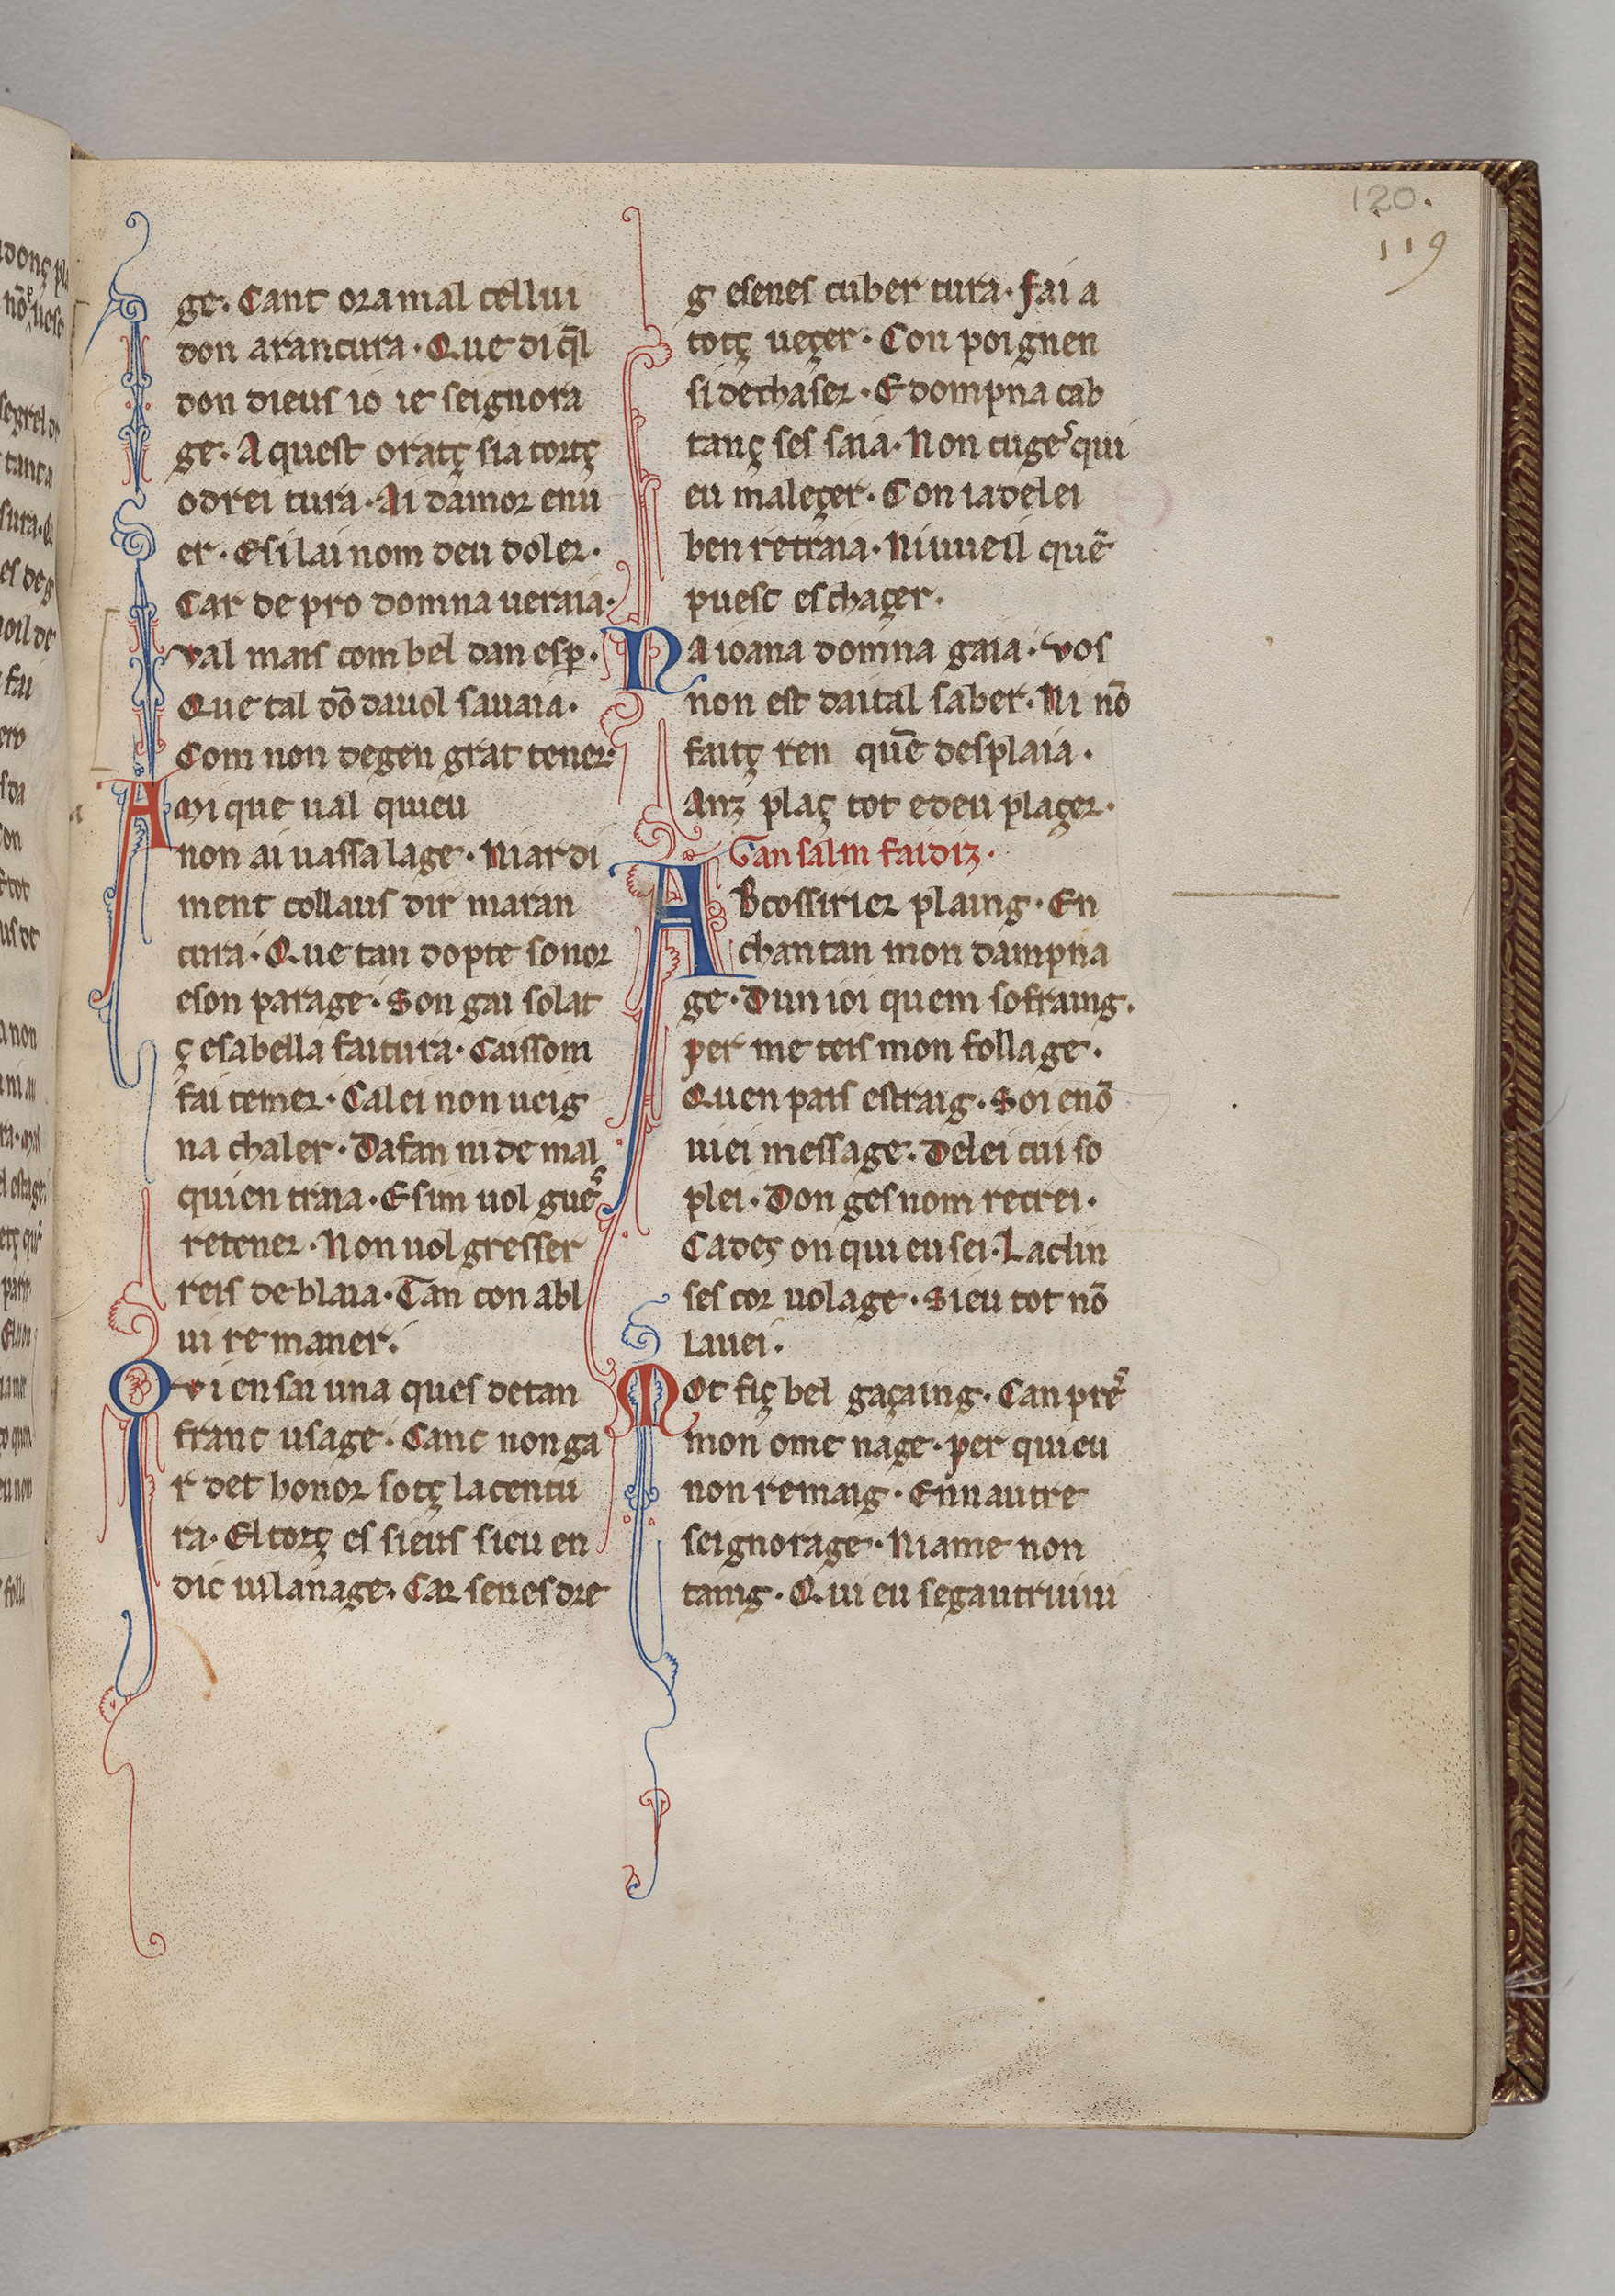 120.
119
ge. Cant ora mal cellui
don arancura. Que di q̃l
don dieus io ie seignora
ge. A quest oratç sia tortç
o drei tura. Ai damor enu
er. E si lai nom deu doler.
Car de pro domna ueraia.
Val mais com bel dan esꝑ.
Que tal dõ dauol sauaia.
Com non degen grat tener.
A mi que ual quieu
non ai uassalage. Ni ardi
ment collaus dir maran
cura. Que tan dopte sonor
e son parage. Son gai solat
ç e sa bella faitura. Caissom
fai temer. Ca lei non ueig
na chaler. Dafan ni de mal
quien traia. E sim uol gue᷑
retener. Non uol gresser
reis de blaia. Tan con abl
ui re maner.
Qvi en sai una ques de tan
franc usage. Canc non ga
r det honor sotç la centu
ra. El torç es sieus sieu en
dic uilanage. Car senes dre
g e senes cuber tura. Fai a
totç ueçer. Con poignen
si dechaser. E dompna cab
tanç ses saia. Non cuge᷑ qui
eu maleçer. Con ia de lei
ben retraia. Ni uueil quẽ
puesc eschaçer.
Na ioana domna gaia. Vos
non est daital saber. Ni nõ
faitç ren quẽ desplaia.
Anz plaç tot e deu plaçer.
Gansalm faidiz.
ABcossirier plaing. En
chantan mon dampna
ge. Dun ioi quem sofraing.
per me teis mon follage.
Quen pais estraig. Soi e nõ
uiei message. De lei cui so
plei. Don ges nom recrei.
Cades on qui eu sei. Laclin
ses cor uolage. Sieu tot nõ
lauei.
Mot fiç bel gaçaing. Can pre᷑
mon ome nage. per quieu
non remaig. En nautre
seignorage. Ni ame non
taing. Qui eu segautruiui